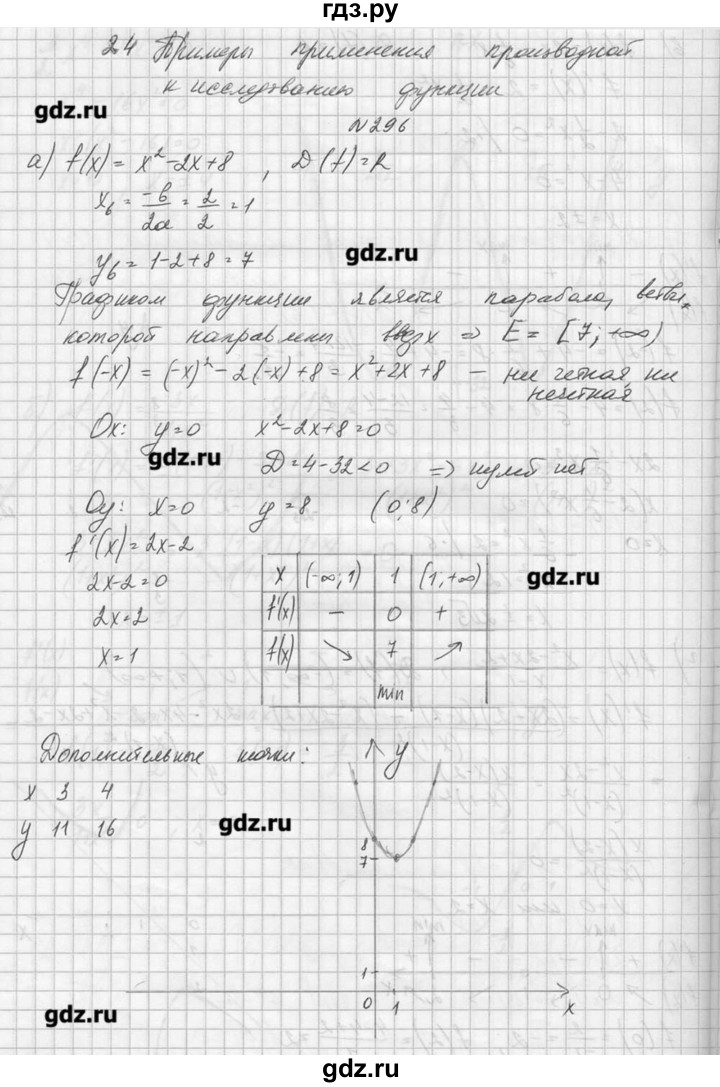 гдз.ру
24 Примеры применения производной
к исследованию функции
gdz.ru
№296
а) f(x) = x² - 2x + 8 , D(f) = R
x₆ = -b/2a = 2/2 = 1
gdz.ru
y₆ = 1 - 2 + 8 = 7
Графиком функции является парабола, ветви
которой направлены вверх => E = [7; +∞)
f(-x) = (-x)² - 2(-x) + 8 = x² + 2x + 8 — ни четная, ни
нечетная
Ox: y = 0 x² - 2x + 8 = 0
gdz.ru
D = 4 - 32 < 0 => нулей нет
Oy: x = 0 y = 8 (0; 8)
f'(x) = 2x - 2
2x - 2 = 0
2x = 2
x = 1
x (-∞; 1) 1 (1, +∞)
gdz.ru
f'(x) - 0 +
f(x) ↘ 7 ↗
min
Дополнительные точки:
x 3 4
y 11 16
gdz.ru
y
8
7
1
0 1 x
gdz.ru
gdz.ru